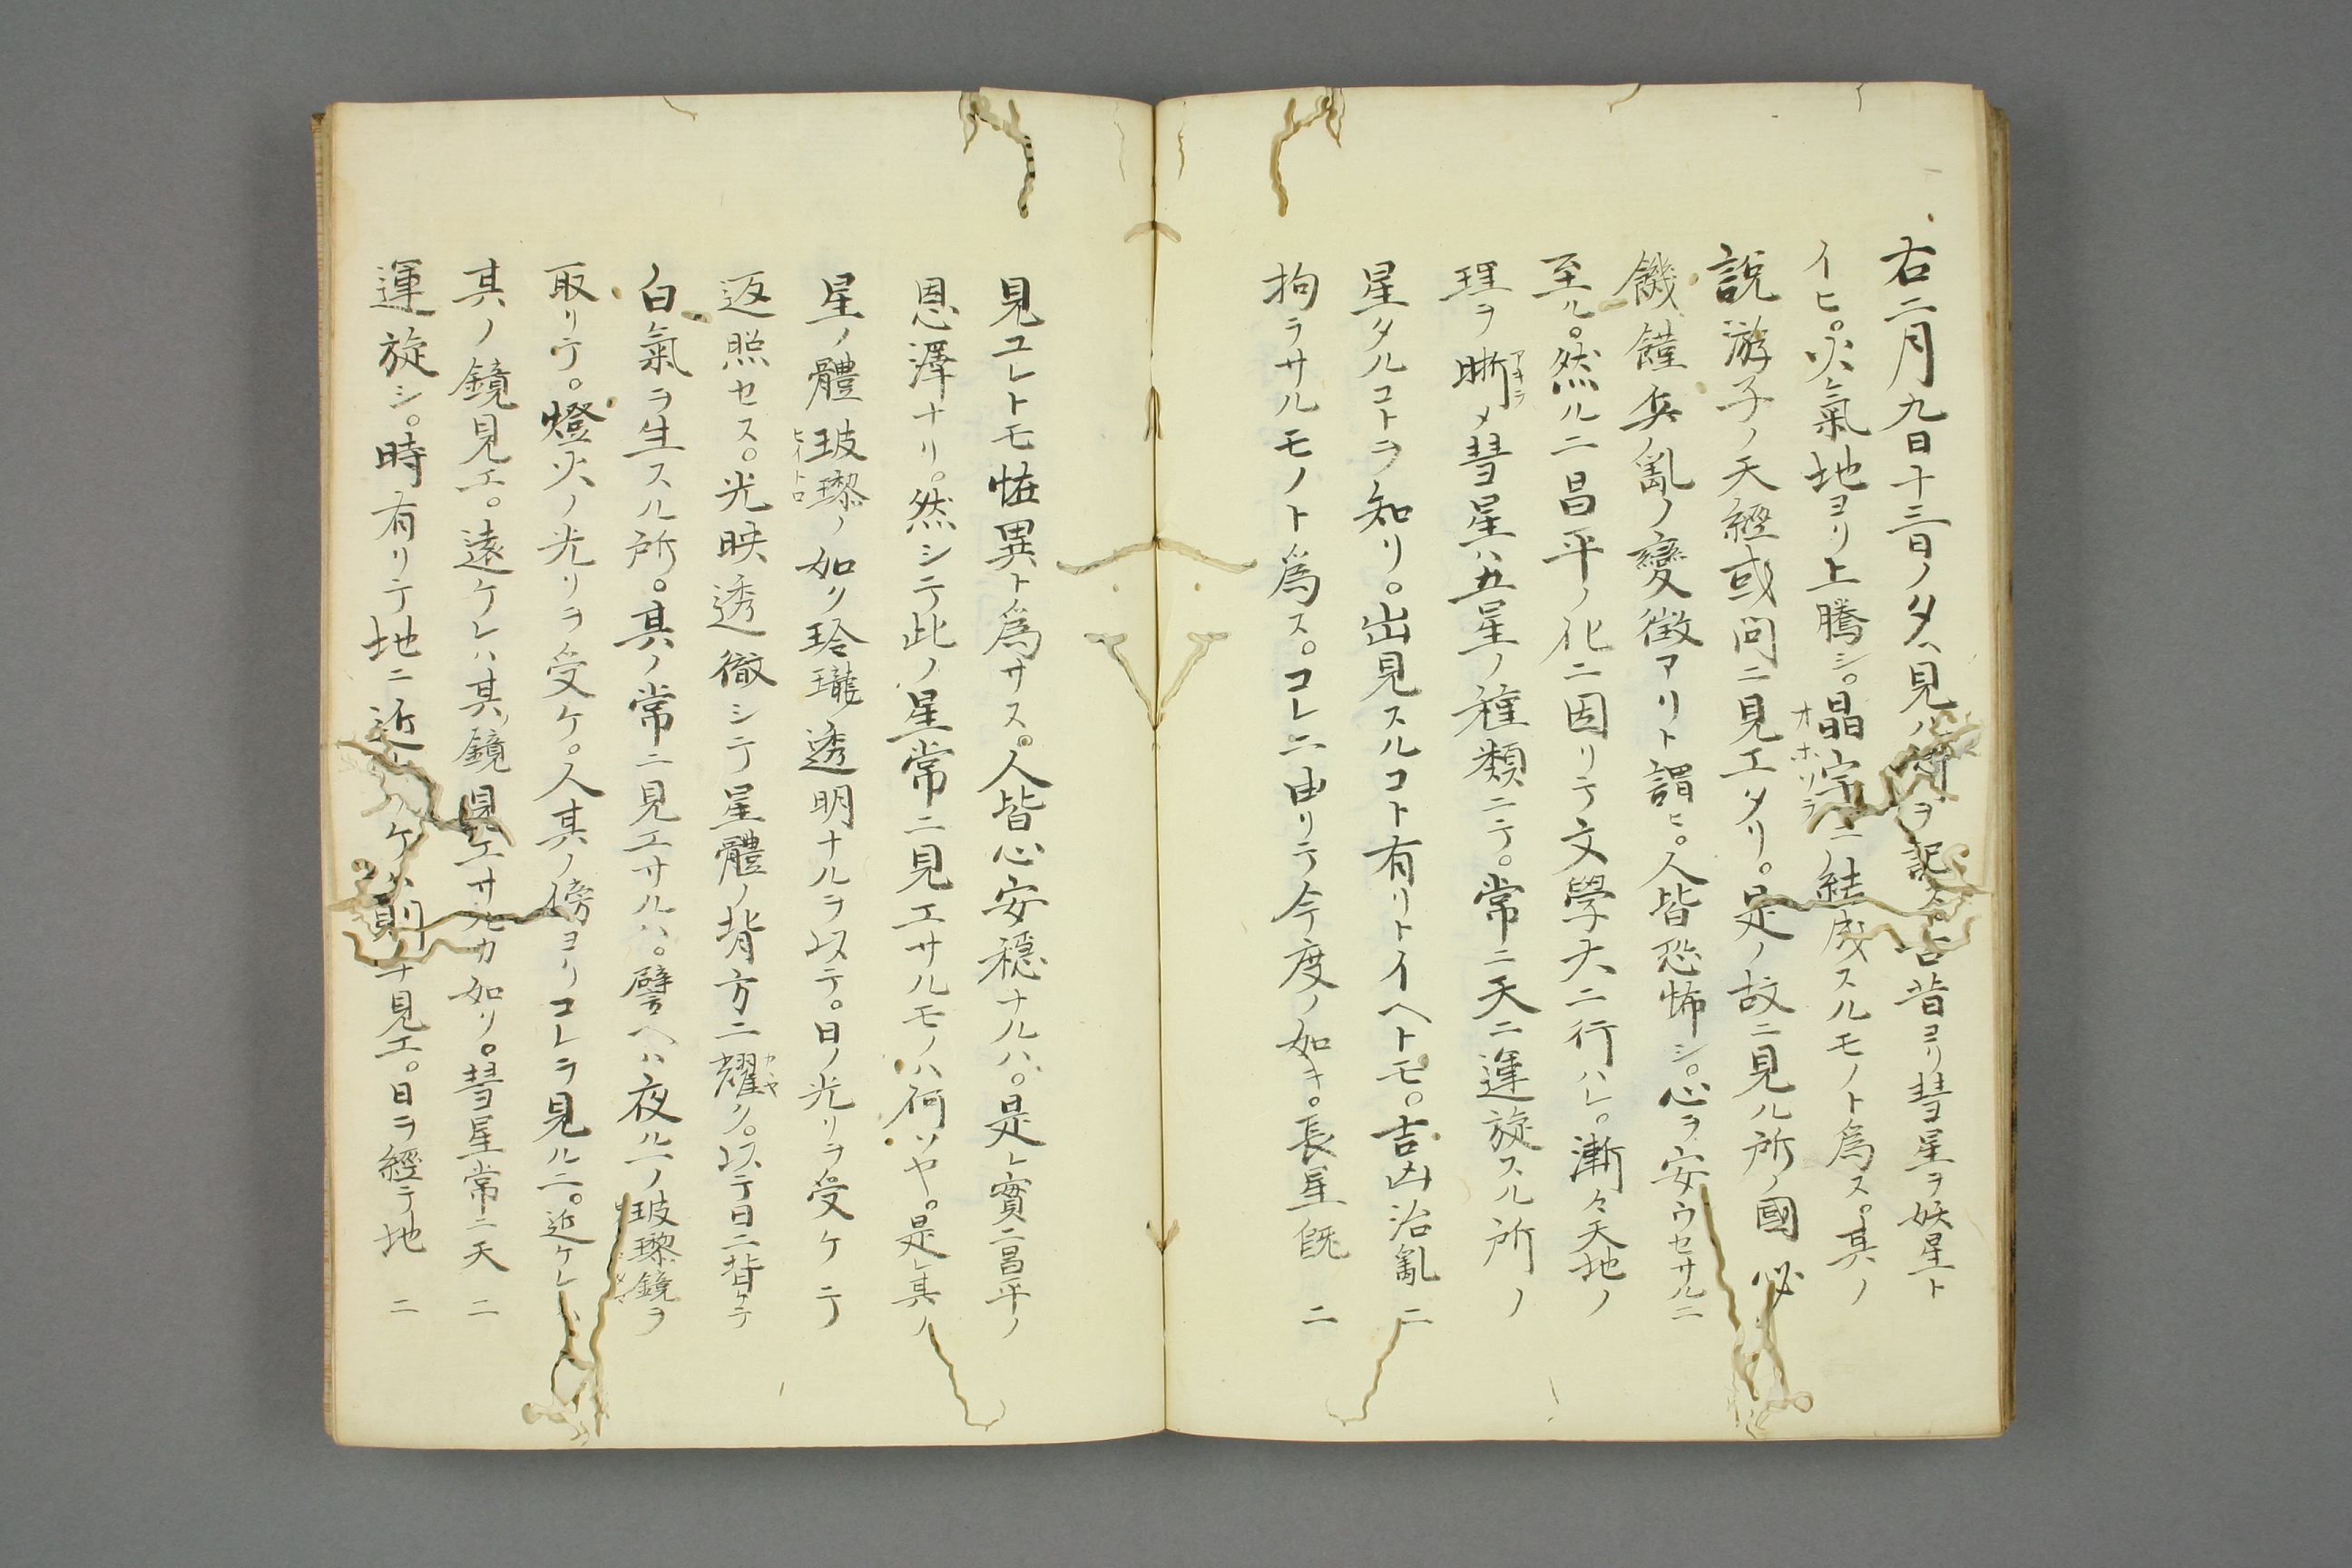 右二月九日十三日ノ夕ヘ見ル所ヲ記ス。古昔ヨリ彗星ヲ妖星ト
イヒ。火氣地ヨリ上騰シ。晶宇ニ結成スルモノト為ス。其ノ
オホソラ
說游子ノ天經或問ニ見エタリ。是ノ故ニ見ル所ノ國必
饑饉兵亂ノ變徵アリト謂ヒ。人皆恐怖シ。心ヲ安ウセサルニ
至ル。然ルニ昌平ノ化ニ因リテ文學大ニ行ハレ。漸々天地ノ
理ヲ晣メ彗星ハ五星ノ種類ニテ。常ニ天ニ運旋スル所ノ
アキラ
星タルコトヲ知リ。出見スルコト有リトイヘトモ。吉凶治亂ニ
拘ラサルモノト為ス。コレニ由リテ今度ノ如キ。長星既ニ
見ユレトモ恠異ト為サス。人皆心安穩ナルハ。是レ實ニ昌平ノ
恩澤ナリ。然シテ此ノ星常ニ見エサルモノハ何ソヤ。是レ其ノ
星ノ體玻瓈ノ如ク玲瓏透明ナルヲ以テ。日ノ光リヲ受ケテ
ヒイトロ
返照セス。光映透徹シテ星體ノ背方ニ耀ク。以テ日ニ背キテ
カヤ
白氣ヲ生スル所。其ノ常ニ見エサルハ。譬ヘハ夜ルノ玻瓈鏡ヲ
取リテ。燈火ノ光リヲ受ケ。人其ノ傍ヨリコレヲ見ルニ。近ケレハ
其ノ鏡見エ。遠ケレハ其ノ鏡見エサルカ如リ。彗星常ニ天ニ
運旋シ。時有リテ地ニ近ケハ則チ見エ。日ヲ經テ地ニ